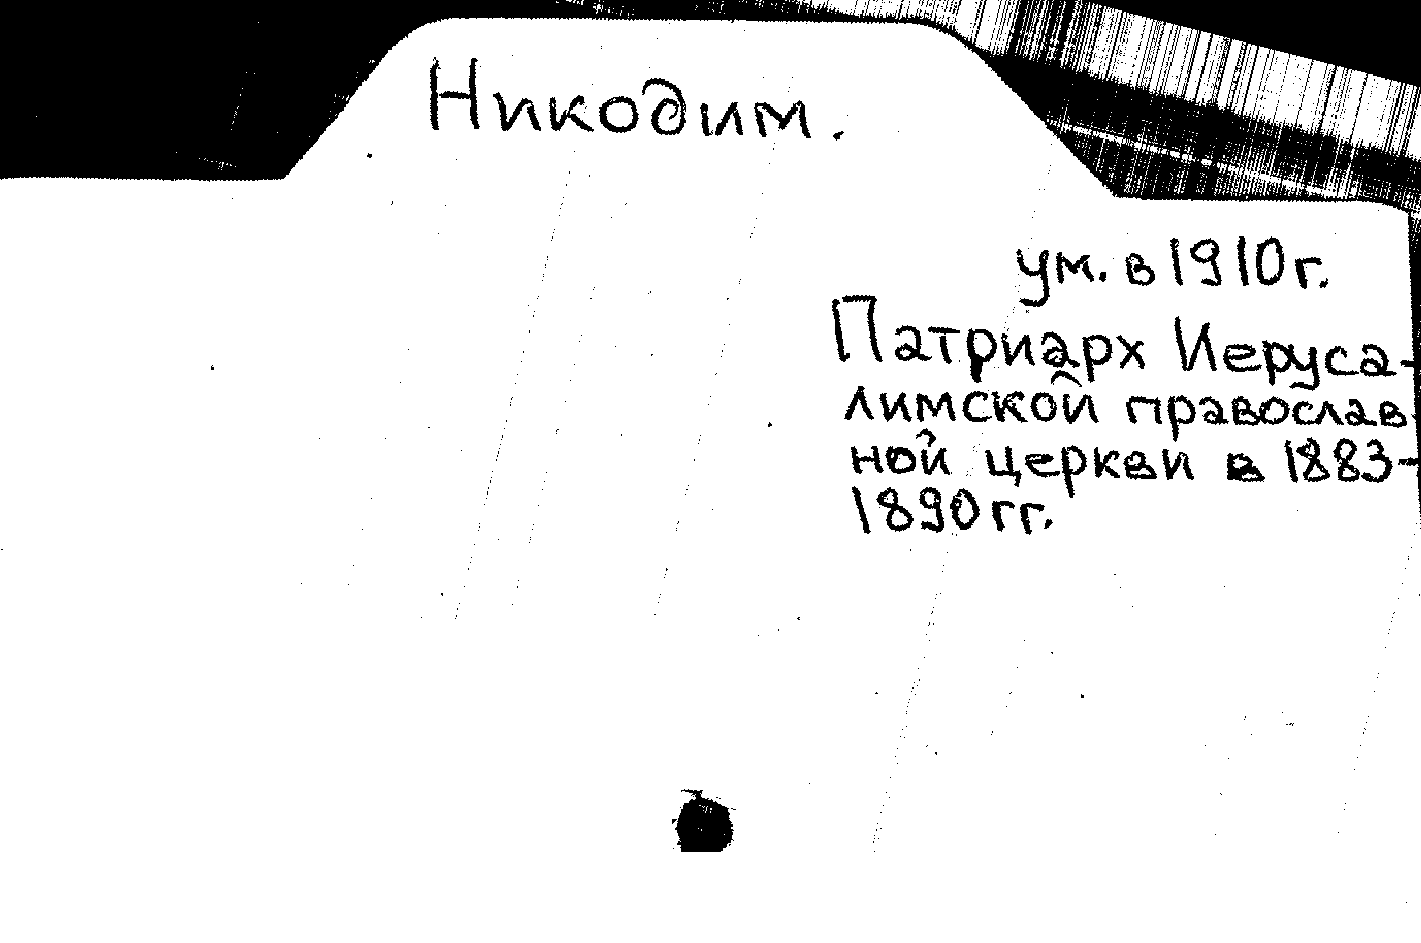 Никодим.
ум. в 1910 г.
Патриарх Иеруса-
лимской православ-
ной церкви в 1883-
1890 гг.